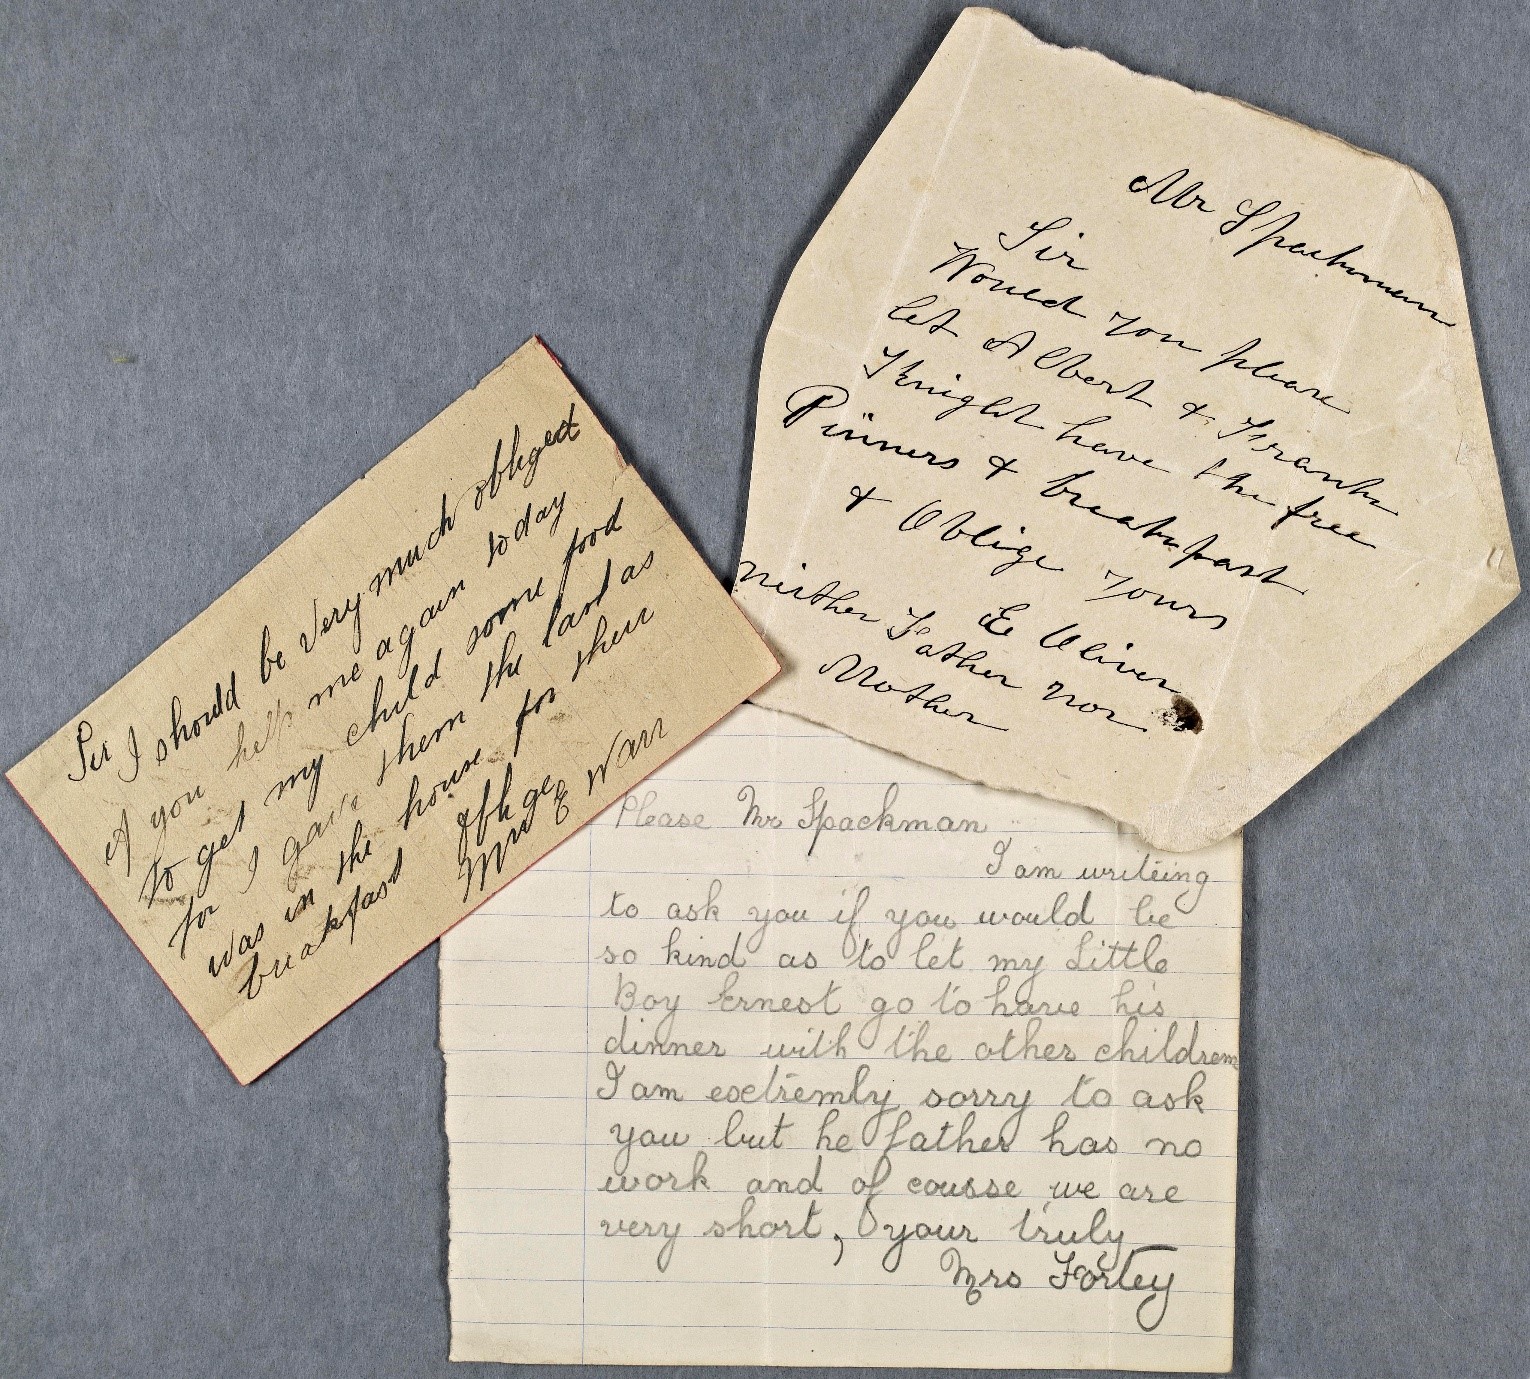 Sir I should be very much obliged
if you help me again today
to get my child some food
for I gave them the last as
was in the house for their
breakfast Oblige
Mrs E Warr
Mr Spackman
Sir
Would you please
let Albert & Frank
Knight have the free
Dinners & breakfast
& Oblige yours
E Oliver
neither Father nor
Mother
Please Mr Spackman
I am writeing
to ask you if you would be
so kind as to let my Little
Boy Ernest go to have his
dinner with the other children
I am extremly sorry to ask
you but he father has no
work and of cousse we are
very short, your truly
Mrs Fortey